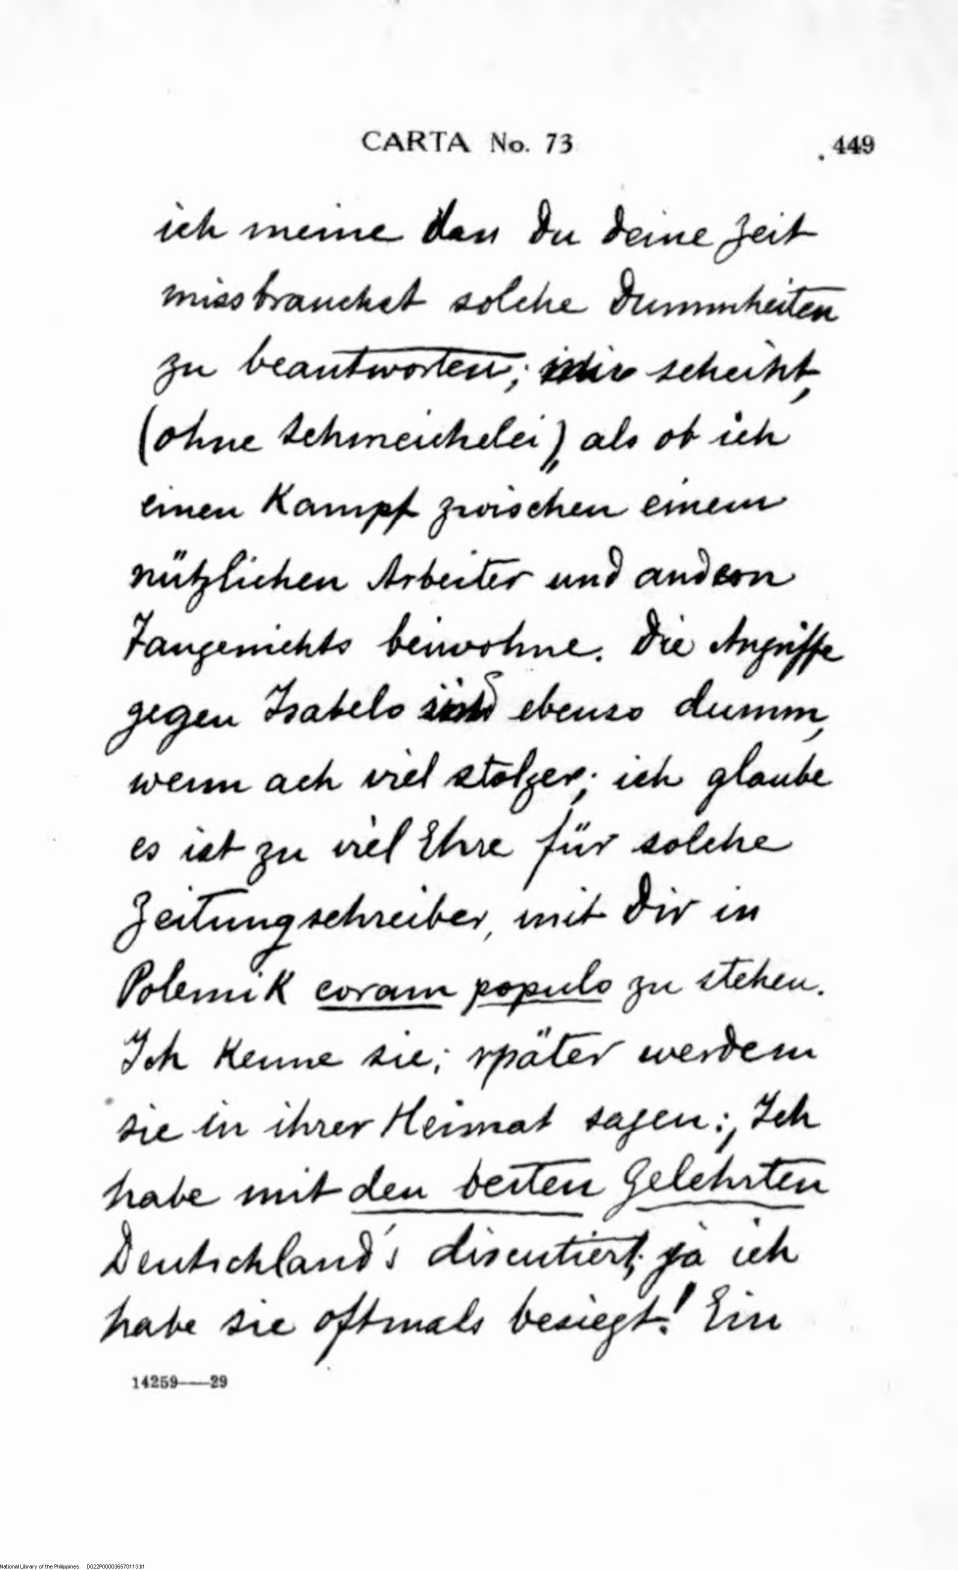 CARTA No. 73 449
ich meine dass du deine Zeit
missbrauchst solche Dummheiten
zu beantworten; mir scheint,
(ohne Schmeichelei), als ob ich
einen Kampf zwischen einem
nützlichen Arbeiter und andern
Taugenichts beiwohne. Die Angriffe
gegen Isabelo sind ebenso dumm,
wenn ach viel stolzer; ich glaube
es ist zu viel Ehre für solche
Zeitungschreiber, mit Dir in
Polemik coram populo zu stehen.
Ich kenne sie; später werdem
sie in ihrer Heimat sagen:, Ich
habe mit den besten Gelehrten
Deutschland's discutiert; ja ich
habe sie oftmals besiegt! Ein
14259——29
National Library of the Philippines